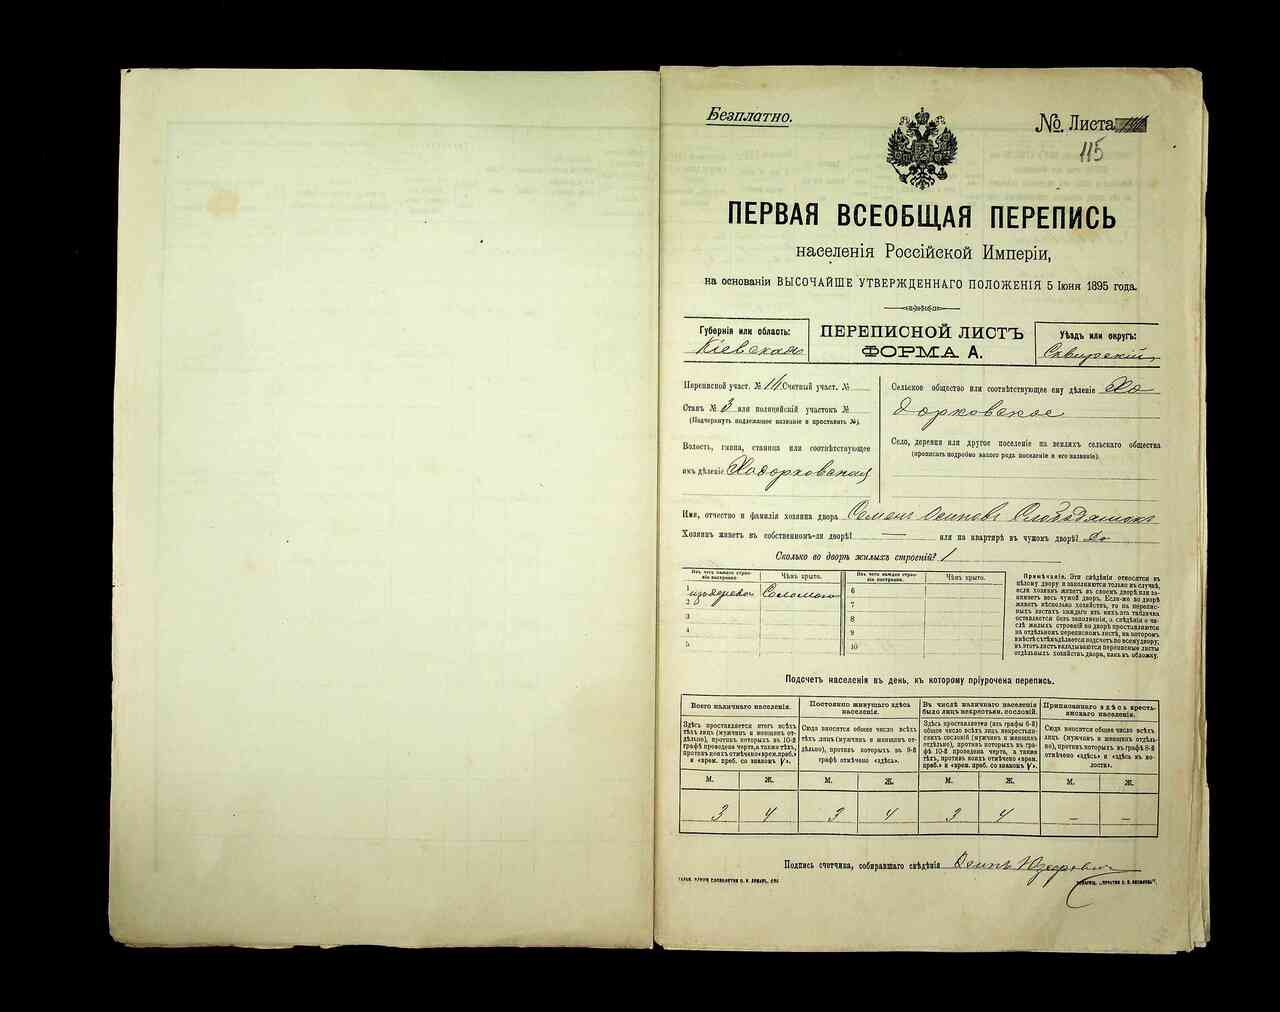 Безплатно.
№ Листа
115
ПЕРВАЯ ВСЕОБЩАЯ ПЕРЕПИСЬ
населенія Россійской Имперіи,
на основаніи ВЫСОЧАЙШЕ УТВЕРЖДЕННАГО ПОЛОЖЕНІЯ 5 Іюня 1895 года.
Губернія или область:
Кіевская
ПЕРЕПИСНОЙ ЛИСТЪ
ФОРМА А.
Уѣздъ или округъ:
Сквирскій
Переписной участ. № Счетный участ. №
Станъ № 3 или полицейскій участокъ №
(Подчеркнуть подлежащее названіе и проставить №).
Волость, гмина, станица или соотвѣтствующее
имъ дѣленіе Ходорковская
Сельское общество или соотвѣтствующее ему дѣленіе Хо
дорковское
Село, деревня или другое поселеніе на земляхъ сельскаго общества
(прописать подробно какого рода поселеніе и его названіе).
Имя, отчество и фамилія хозяина двора Семенъ Осиповъ
Хозяинъ живетъ въ собственномъ-ли дворѣ? — или на квартирѣ въ чужомъ дворѣ? да
Сколько во дворѣ жилыхъ строеній? 1
Изъ чего каждое строеніе построено.
Чѣмъ крыто.
Изъ чего каждое строеніе построено.
Чѣмъ крыто.
1 изъ дерева Соломою
2
3
4
5
6
7
8
9
10
Примѣчаніе. Эти свѣдѣнія относятся къ
цѣлому двору и заполняются только въ случаѣ,
если хозяинъ живетъ въ своемъ дворѣ или за-
нимаетъ весь чужой дворъ. Если-же во дворѣ
живетъ нѣсколько хозяйствъ, то на перепис-
ныхъ листахъ каждаго изъ нихъ эта табличка
оставляется безъ заполненія, а свѣдѣнія о чи-
слѣ жилыхъ строеній во дворѣ проставляются
на отдѣльномъ переписномъ листѣ, на которомъ
вмѣстѣ съ тѣмъ дѣлается подсчетъ по всему двору;
въ этотъ листъ вкладываются переписные листы
отдѣльныхъ хозяйствъ двора, какъ въ обложку.
Подсчетъ населенія въ день, къ которому пріурочена перепись.
Всего наличнаго населенія.
Здѣсь проставляется итогъ всѣхъ
тѣхъ лицъ (мужчинъ и женщинъ от-
дѣльно), противъ которыхъ въ 10-й
графѣ проведена черта, а также тѣхъ,
противъ коихъ отмѣчено «врем. преб.»
и «врем. преб. со знакомъ V».
Постоянно живущаго здѣсь
населенія.
Сюда вносится общее число всѣхъ
тѣхъ лицъ (мужчинъ и женщинъ от-
дѣльно), противъ которыхъ въ 9-й
графѣ отмѣчено «здѣсь».
Въ числѣ наличнаго населенія
было лицъ некрестьян. сословій.
Здѣсь проставляется (изъ графы 6-й)
общее число всѣхъ лицъ некрестьян-
скихъ сословій (мужчинъ и женщинъ
отдѣльно), противъ которыхъ въ гра-
фѣ 10-й проведена черта, а также
тѣхъ, противъ коихъ отмѣчено «врем.
преб.» и «врем. преб. со знакомъ V».
Приписаннаго здѣсь кресть-
янскаго населенія.
Сюда вносится общее число всѣхъ
лицъ (мужчинъ и женщинъ отдѣль-
но), противъ которыхъ въ графѣ 8-й
отмѣчено «здѣсь» и «здѣсь въ во-
лости».
М. Ж. М. Ж. М. Ж. М. Ж.
3 4 3 4 3 4 — —
Подпись счетчика, собиравшаго свѣдѣнія